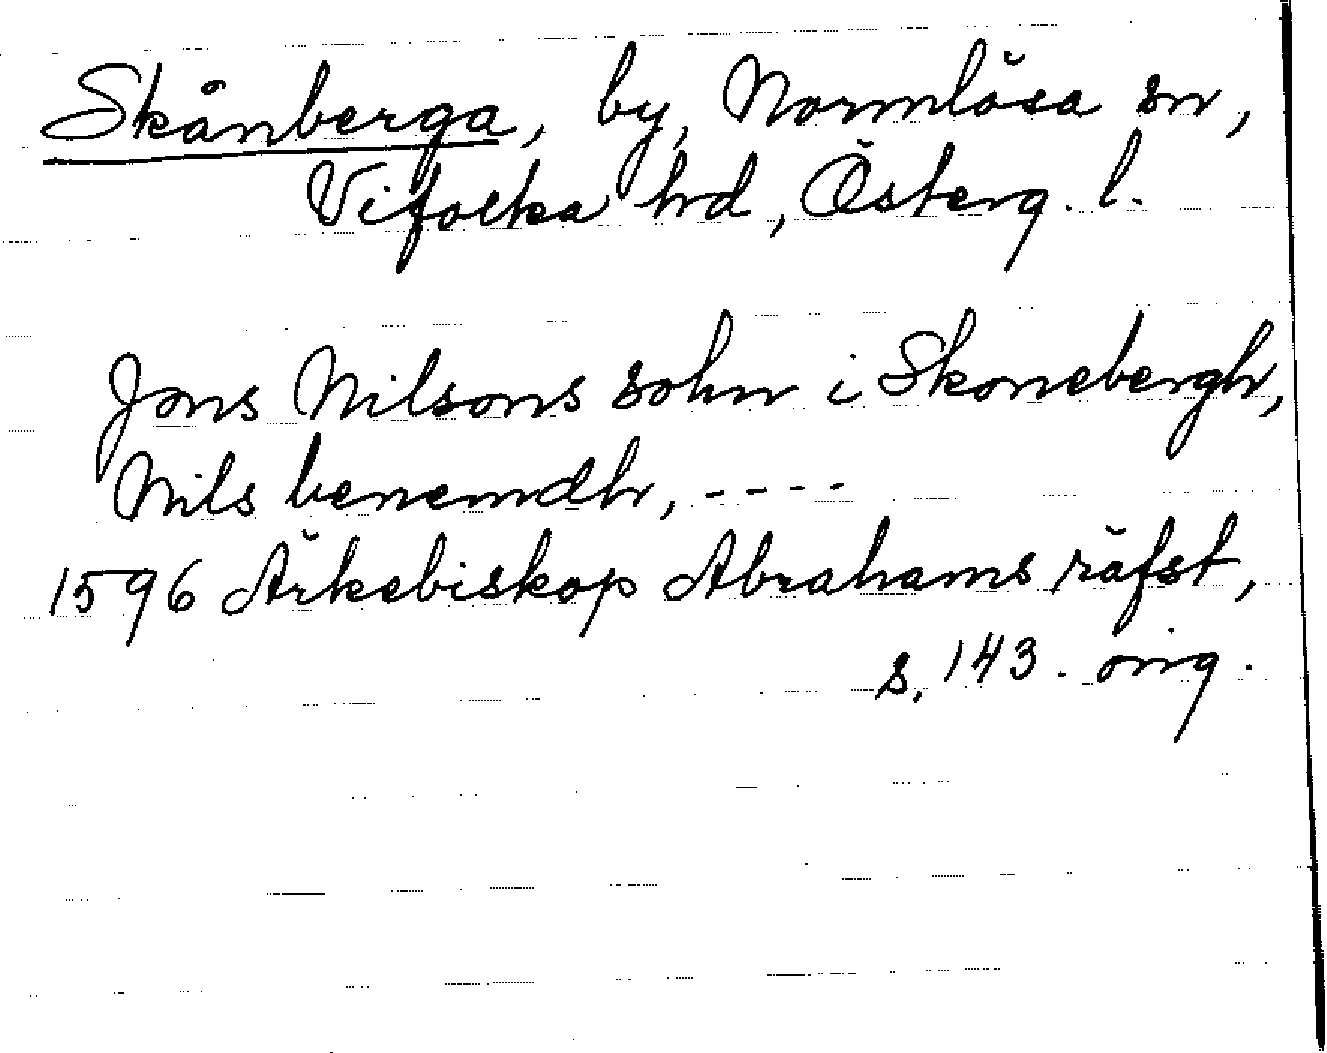 Skånberga, by, Normlösa sn,
Vifolka hd, Österg. l.
Jons Nilsons sohn i Skonebergh,
Nils benemdh, ----
1596 Ärkebiskop Abrahams räfst,
s. 143. orig.